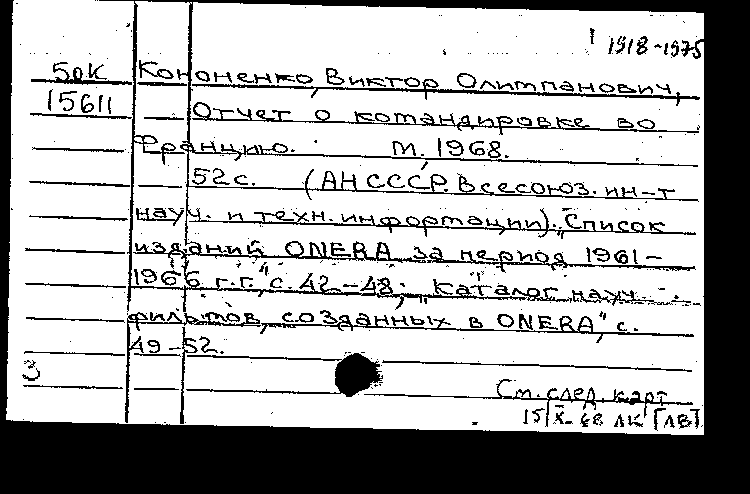 1918-1975
БОК Кононенко, Виктор Олимпанович,
15611 Отчет о командировке во
Францию. М., 1968.
52с. (АН СССР. Всесоюз. ин-т
науч. и техн. информации). „Список
изданий ONERA за период 1961-
1966 г.г.", с. 42-48; „Каталог науч.
фильмов, созданных в ONERA", с.
49-52.
3
См. след. карт
15/X-68 ЛК [ЛВ]